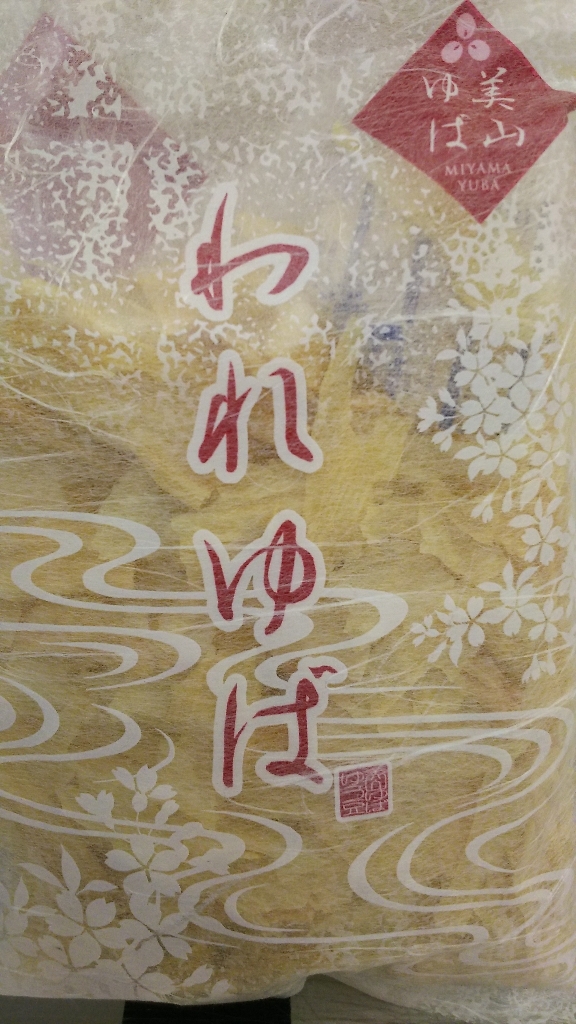 美山
ゆば
MIYAMA
YUBA
われゆば